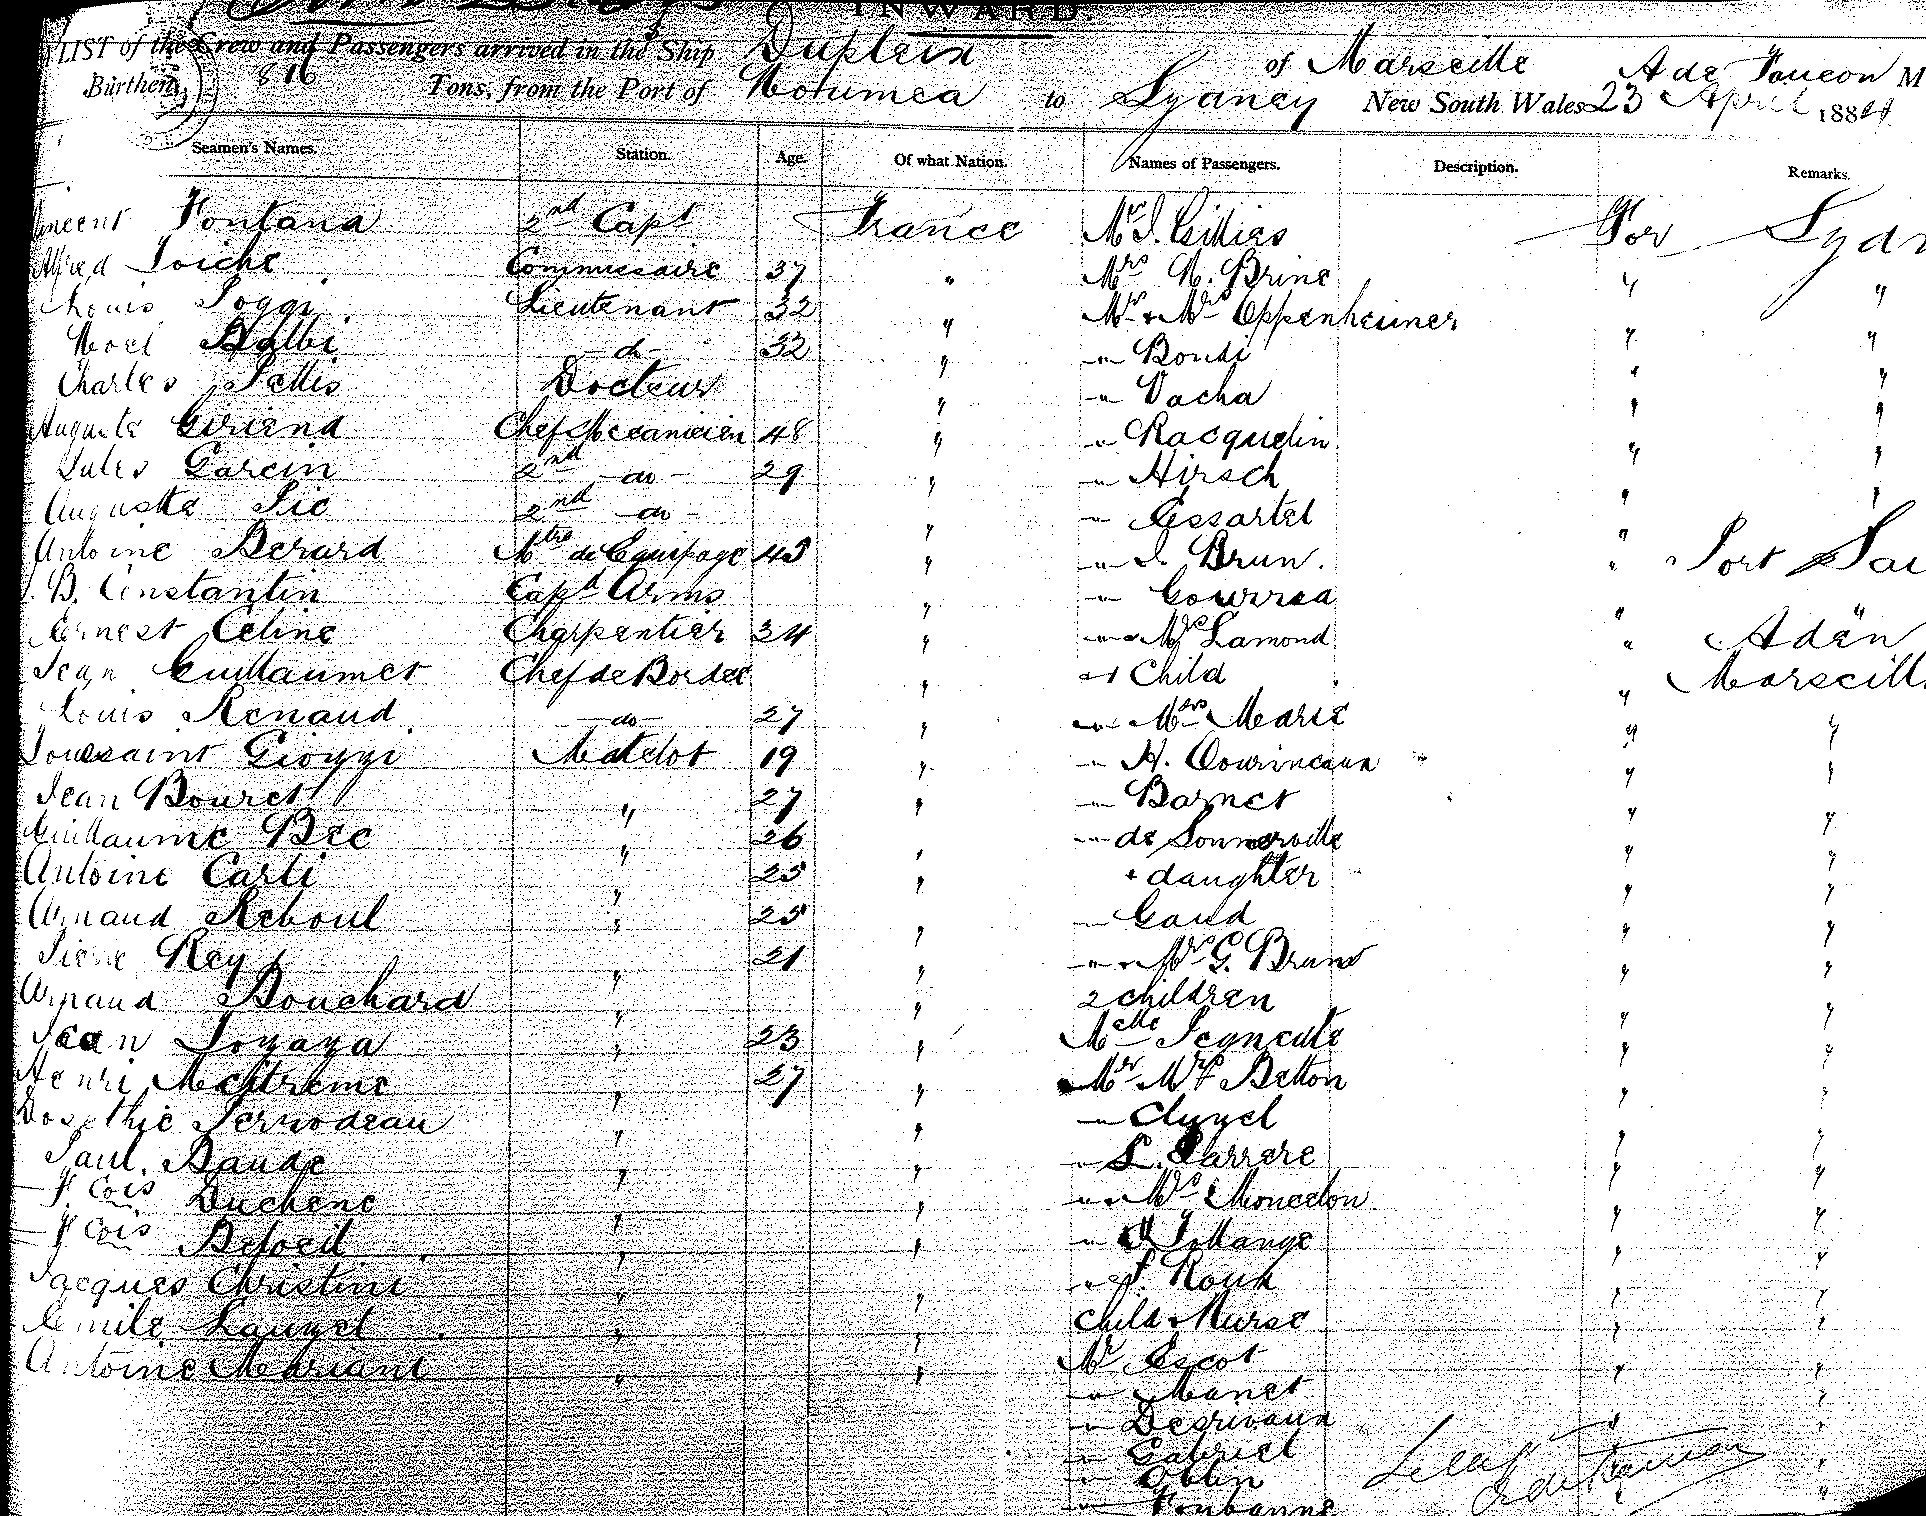 INWARD.
LIST of the Crew and Passengers arrived in the Ship Dupleix of Marseille A de Faucon M
Burthen 816 Tons, from the Port of Noumea to Sydney New South Wales 23 April 188
Seamen's Names. Station. Age. Of what Nation. Names of Passengers. Description. Remarks.
Vincent Fontana 2nd Capt France Mrs J. Gillies For Syd
Alfred Commissaire 37 " Mrs N. Brine " "
Louis Poggi Lieutenant 32 " Mr & Mrs Oppenheimer " "
Noel Balbi d 32 " " Bondi " "
Charles Docteur " " Vacha " "
Auguste Giriend Chef Mecanicien 48 " " Racquelin " "
Jules Garcin 2nd do 29 " " Hirsch " "
Auguste Pic 2nd do " " Essartel "
Antoine Berard Mtre de Equipage 43 " " J. Brun. " Port Sai
J. B. Constantin Capt Arms " " Gourrea "
Ernest Celine Charpentier 34 " " & Mrs Lamond " Aden
Jean Guillaumet Chef de Bordee " & 1 Child " Marseill
Louis Renaud do 27 " " Mrs Marie " "
Toussaint Gioggi Matelot 19 " " H. " "
Jean Bouret " 27 " " Barnet " "
Guillaume Bec " 26 " " de Sonnerville " "
Antoine Carli " 25 " & daughter " "
Arnaud Reboul " 25 " " Gaud " "
Pierre Rey " 21 " " & Mrs G. Brun " "
Arnaud Bouchard " " 2 children " "
Jean Loyaya " 23 " Melle " "
Henri " 27 " Mr Mrs Betton " "
Dosithie " " " Cluzel " "
Paul Baude " " " L. Parrere " "
F. cois Duchene " " " & Mrs Moncelon " "
F. cois " " " " "
Jacques Christini " " " & F. Roux " "
Emile Lauzet " " Child & Nurse " "
Antoine Mariani " " Mr Escot " "
" Manet "
" Desrivaux " "
" Gabriel
" Oblin "
" Fonbonne "